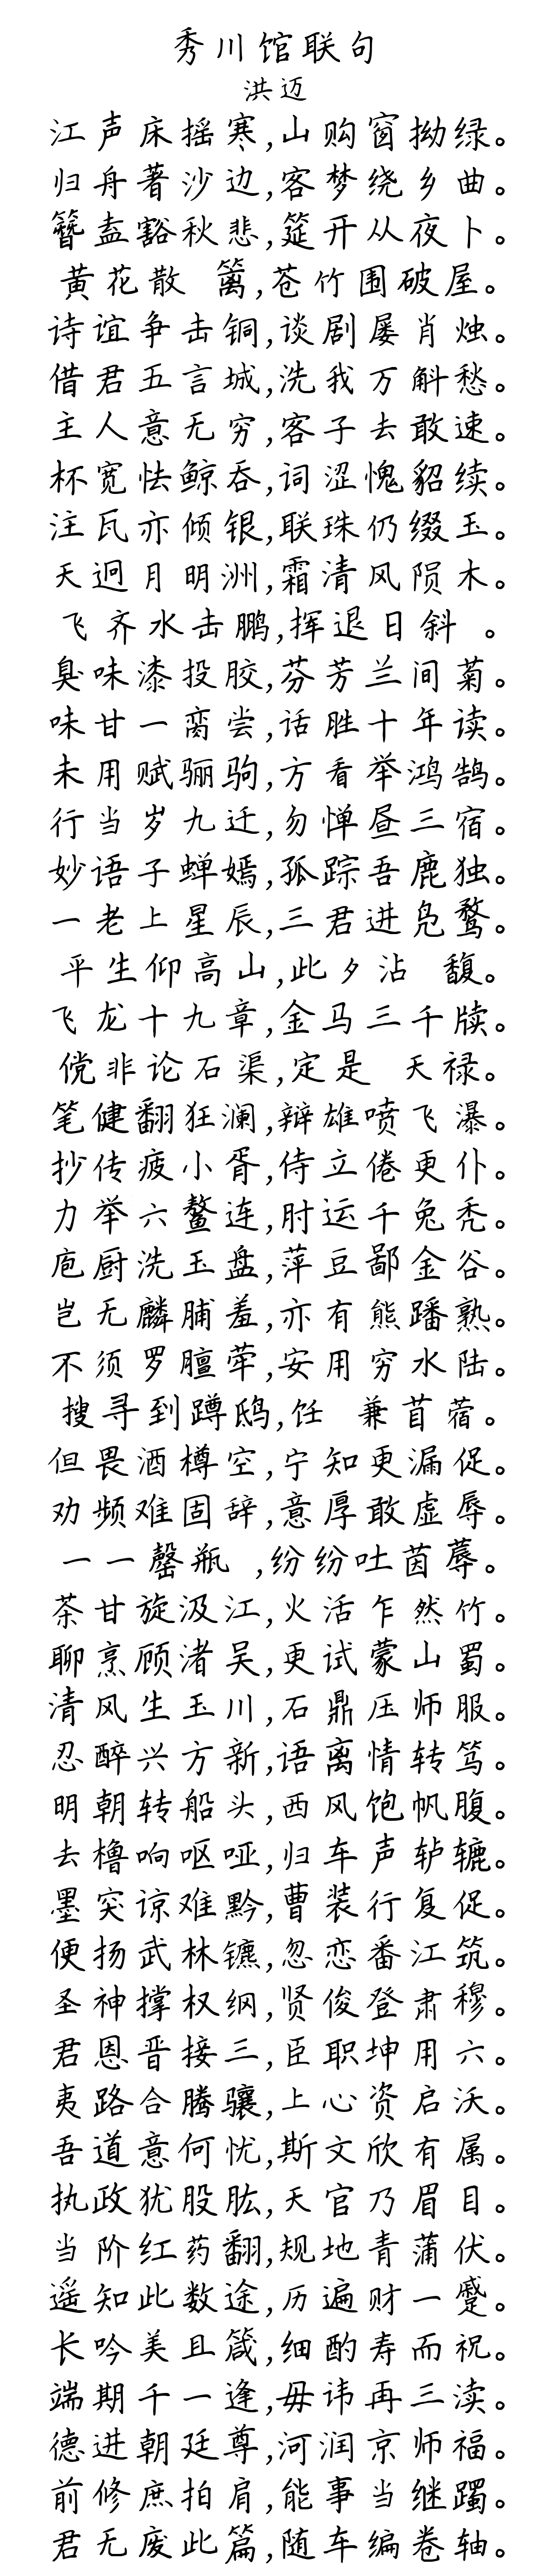 秀川馆联句
洪迈
江声床摇寒,山购窗拗绿。
归舟著沙边,客梦绕乡曲。
簪盍豁秋悲,筵开从夜卜。
黄花散 篱,苍竹围破屋。
诗谊争击铜,谈剧屡肖烛。
借君五言城,洗我万斛愁。
主人意无穷,客子去敢速。
杯宽怯鲸吞,词涩愧貂续。
注瓦亦倾银,联珠仍缀玉。
天迥月明洲,霜清风陨木。
飞齐水击鹏,挥退日斜 。
臭味漆投胶,芬芳兰间菊。
味甘一脔尝,话胜十年读。
未用赋骊驹,方看举鸿鹄。
行当岁九迁,勿惮昼三宿。
妙语子蝉嫣,孤踪吾鹿独。
一老上星辰,三君进凫鹜。
平生仰高山,此夕沾 馥。
飞龙十九章,金马三千牍。
傥非论石渠,定是 天禄。
笔健翻狂澜,辩雄喷飞瀑。
抄传疲小胥,侍立倦更仆。
力举六鳌连,肘运千兔秃。
庖厨洗玉盘,萍豆鄙金谷。
岂无麟脯羞,亦有熊蹯熟。
不须罗膻荤,安用穷水陆。
搜寻到蹲鸱,饪 兼苜蓿。
但畏酒樽空,宁知更漏促。
劝频难固辞,意厚敢虚辱。
一一罄瓶 ,纷纷吐茵蓐。
茶甘旋汲江,火活乍然竹。
聊烹顾渚吴,更试蒙山蜀。
清风生玉川,石鼎压师服。
忍醉兴方新,语离情转笃。
明朝转船头,西风饱帆腹。
去橹响呕哑,归车声轳辘。
墨突谅难黔,曹装行复促。
便扬武林镳,忽恋番江筑。
圣神撑权纲,贤俊登肃穆。
君恩晋接三,臣职坤用六。
夷路合腾骧,上心资启沃。
吾道意何忧,斯文欣有属。
执政犹股肱,天官乃眉目。
当阶红药翻,规地青蒲伏。
遥知此数途,历遍财一蹙。
长吟美且箴,细酌寿而祝。
端期千一逢,毋讳再三渎。
德进朝廷尊,河润京师福。
前修庶拍肩,能事当继躅。
君无废此篇,随车编卷轴。